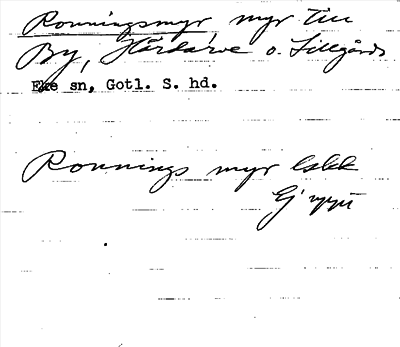 Ronningsmyr myr till
By, Hårdarve o. Lillgårds
Eke sn, Gotl. S. hd.
Ronnings myr
Ej